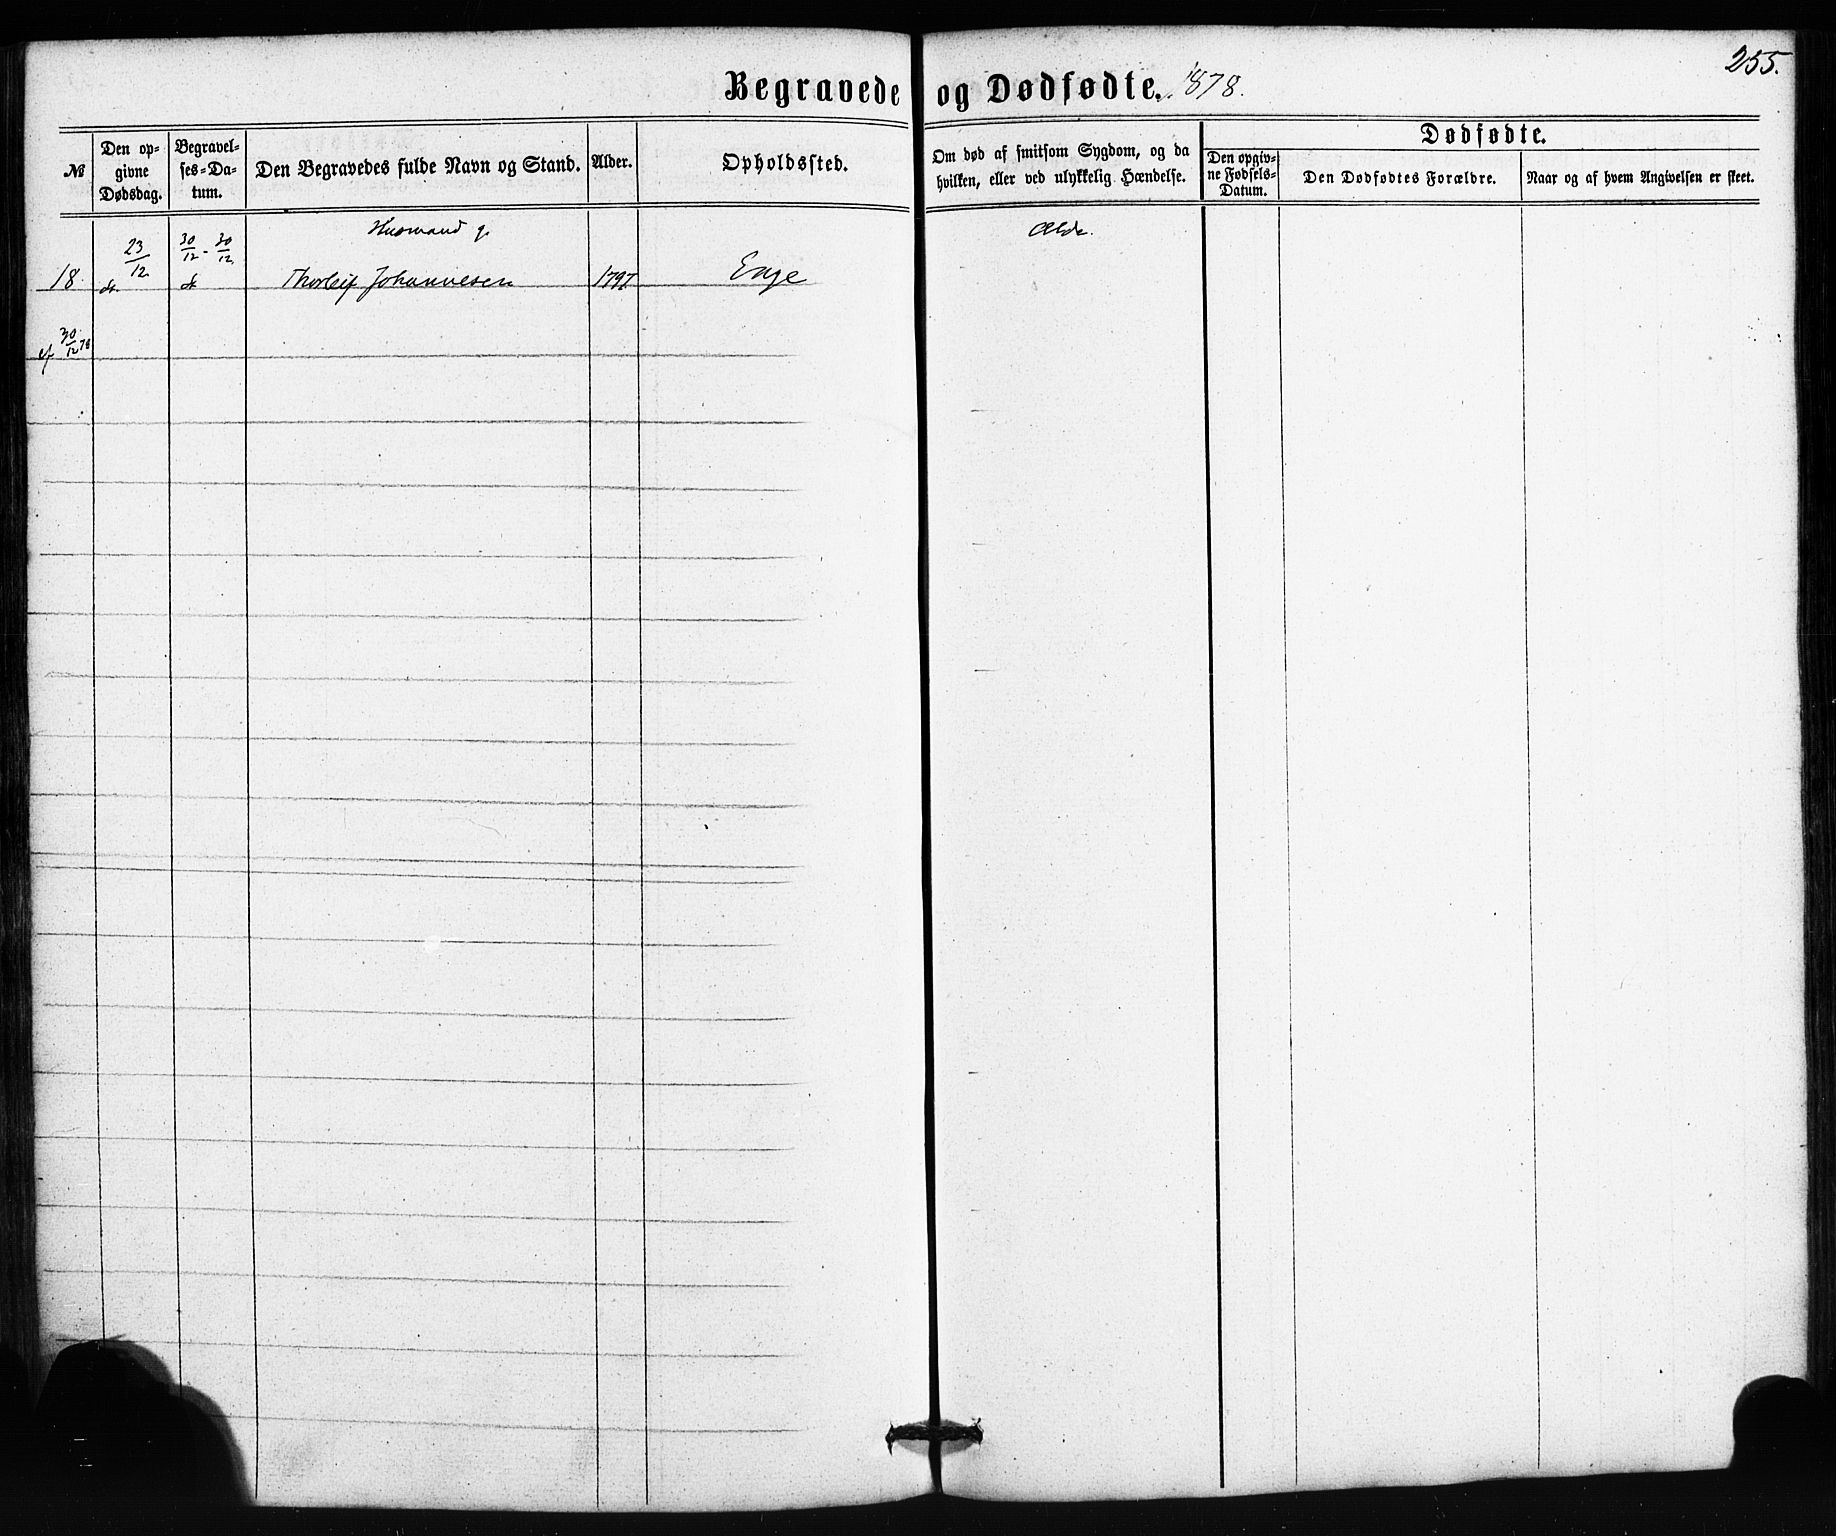 255.
Begravede og Dødfødte. 1878.
№
Den op-
givne
Dødsdag.
Begravel-
ses-Da-
tum.
Den Begravedes fulde Navn og Stand.
Alder.
Opholdssted.
Om død af smitsom Sygdom, og da
hvilken, eller ved ulykkelig Hændelse.
Dødfødte.
Den opgiv-
ne Fødsels-
Datum.
Den Dødfødtes Forældre.
Naar og af hvem Angivelsen er skeet.
23/12 30/12 - 30/12 Husmand g. Ælde.
18. Thorleif Johannesen 1797 Enge
30/12 78